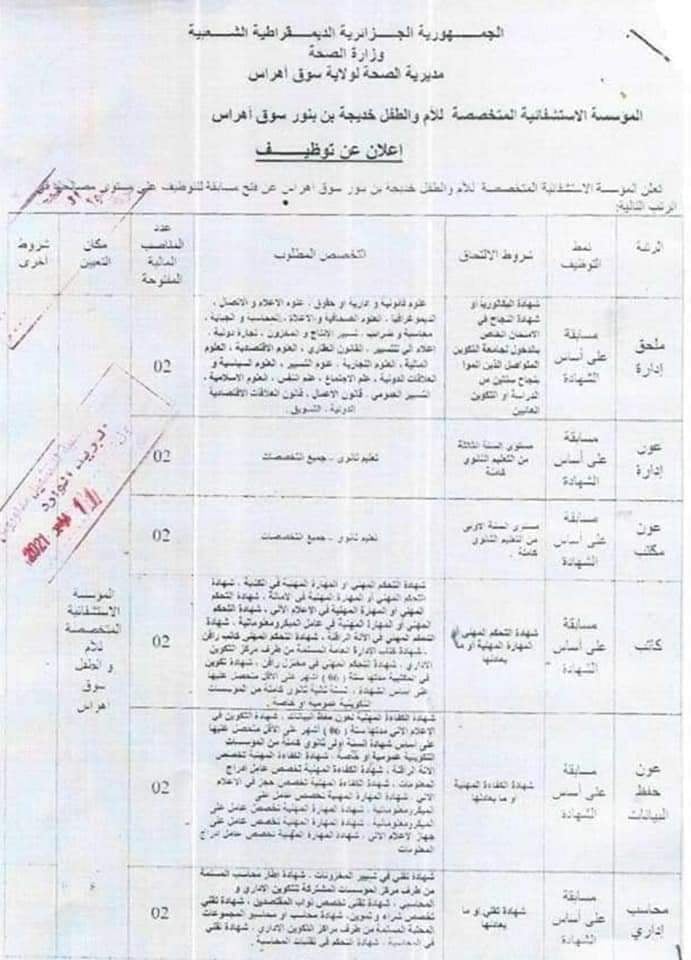 الجمـــهورية الجـــزائرية الديمـــقراطية الشـــعبية
وزارة الصحة
مديرية الصحة لولاية سوق أهراس
المؤسسة الاستشفائية المتخصصة للأم والطفل خديجة بن بنور سوق أهراس
إعلان عن توظيـــف
تعلن المؤسسة الاستشفائية المتخصصة للأم والطفل خديجة بن بنور سوق أهراس عن فتح مسابقة للتوظيف على مستوى مصالحها في
الرتب التالية:
الرتبة
نمط
التوظيف
شروط الالتحاق
التخصص المطلوب
عدد
المناصب
المالية
المفتوحة
مكان
التعيين
شروط
أخرى
ملحق
إدارة
مسابقة
على أساس
الشهادة
شهادة البكالوريا أو
شهادة النجاح في
الامتحان الخاص
بالدخول لجامعة التكوين
المتواصل الذين أتموا
بنجاح سنتين من
الدراسة أو التكوين
العاليين
علوم قانونية و إدارية أو حقوق ، علوم الاعلام و الاتصال ،
الديموغرافيا ، العلوم الصحافية و الاعلام ، المحاسبة و الجباية ،
محاسبة و ضرائب ، تسيير الانتاج و المخزون ، تجارة دولية ،
إعلام آلي للتسيير ، القانون العقاري ، العلوم الاقتصادية ، العلوم
المالية ، العلوم التجارية ، علوم التسيير ، العلوم السياسية و
العلاقات الدولية ، علم الاجتماع ، علم النفس ، العلوم الاسلامية ،
التسيير العمومي ، قانون الاعمال ، قانون العلاقات الاقتصادية
الدولية ، التسويق .
02
عون
إدارة
مسابقة
على أساس
الشهادة
مستوى السنة الثالثة
من التعليم الثانوي
كاملة
تعليم ثانوي - جميع التخصصات
02
عون
مكتب
مسابقة
على أساس
الشهادة
مستوى السنة الأولى
من التعليم الثانوي
كاملة
تعليم ثانوي - جميع التخصصات
02
كاتب
مسابقة
على أساس
الشهادة
شهادة التحكم المهني
المهارة المهنية أو ما
يعادلها
شهادة التحكم المهني أو المهارة المهنية في الكتابة ، شهادة
التحكم المهني أو المهارة المهنية في الأمانة ، شهادة التحكم
المهني أو المهارة المهنية في الاعلام الآلي ، شهادة التحكم
المهني أو المهارة المهنية في عامل الميكرومعلوماتية ، شهادة
التحكم المهني في الآلة الراقنة ، شهادة التحكم المهني كاتب راقن
، شهادة كتاب الإدارة العامة المسلمة من طرف مركز التكوين
الإداري ، شهادة التحكم المهني في مختزل راقن ، شهادة تكوين
في المكتبية مدتها ستة ( 06 ) أشهر على الأقل متحصل عليها
على أساس الشهادة ، لسنة ثانية ثانوي كاملة من المؤسسات
التكوينية عمومية أو خاصة .
02
المؤسسة
الاستشفائية
المتخصصة
للأم
و الطفل
سوق
أهراس
عون
حفظ
البيانات
مسابقة
على أساس
الشهادة
شهادة الكفاءة المهنية
أو ما يعادلها
شهادة الكفاءة المهنية لعون حفظ البيانات ، شهادة التكوين في
الاعلام الآلي مدتها ستة ( 06 ) أشهر على الأقل متحصل عليها
على أساس شهادة السنة أولى ثانوي كاملة من المؤسسات
التكوينية عمومية أو خاصة ، شهادة الكفاءة المهنية تخصص
الآلة الراقنة ، شهادة الكفاءة المهنية تخصص عامل ادراج
المعلومات ، شهادة الكفاءة المهنية تخصص حجز في الاعلام
الآلي ، شهادة المهارة المهنية تخصص عامل على
الميكرومعلوماتية ، شهادة المهارة المهنية تخصص عامل على
جهاز لاعلام الآلي ، شهادة المهارة المهنية تخصص عامل ادراج
المعلومات
02
محاسب
إداري
مسابقة
على أساس
الشهادة
شهادة تقني أو ما
يعادلها
شهادة تقني في تسيير المخزونات ، شهادة إطار محاسب المسلمة
من طرف مركز المؤسسات المشتركة للتكوين الإداري و
المحاسبي ، شهادة تقني تخصص نواب المقتصدين ، شهادة تقني
تخصص شراء و تموين، شهادة محاسب أو محاسبو المجموعات
المحلية المسلمة من طرف مراكز التكوين الإداري ، شهادة تقني
في المحاسبة ، شهادة التحكم في تقنيات المحاسبة .
02
البريد الوارد
2021